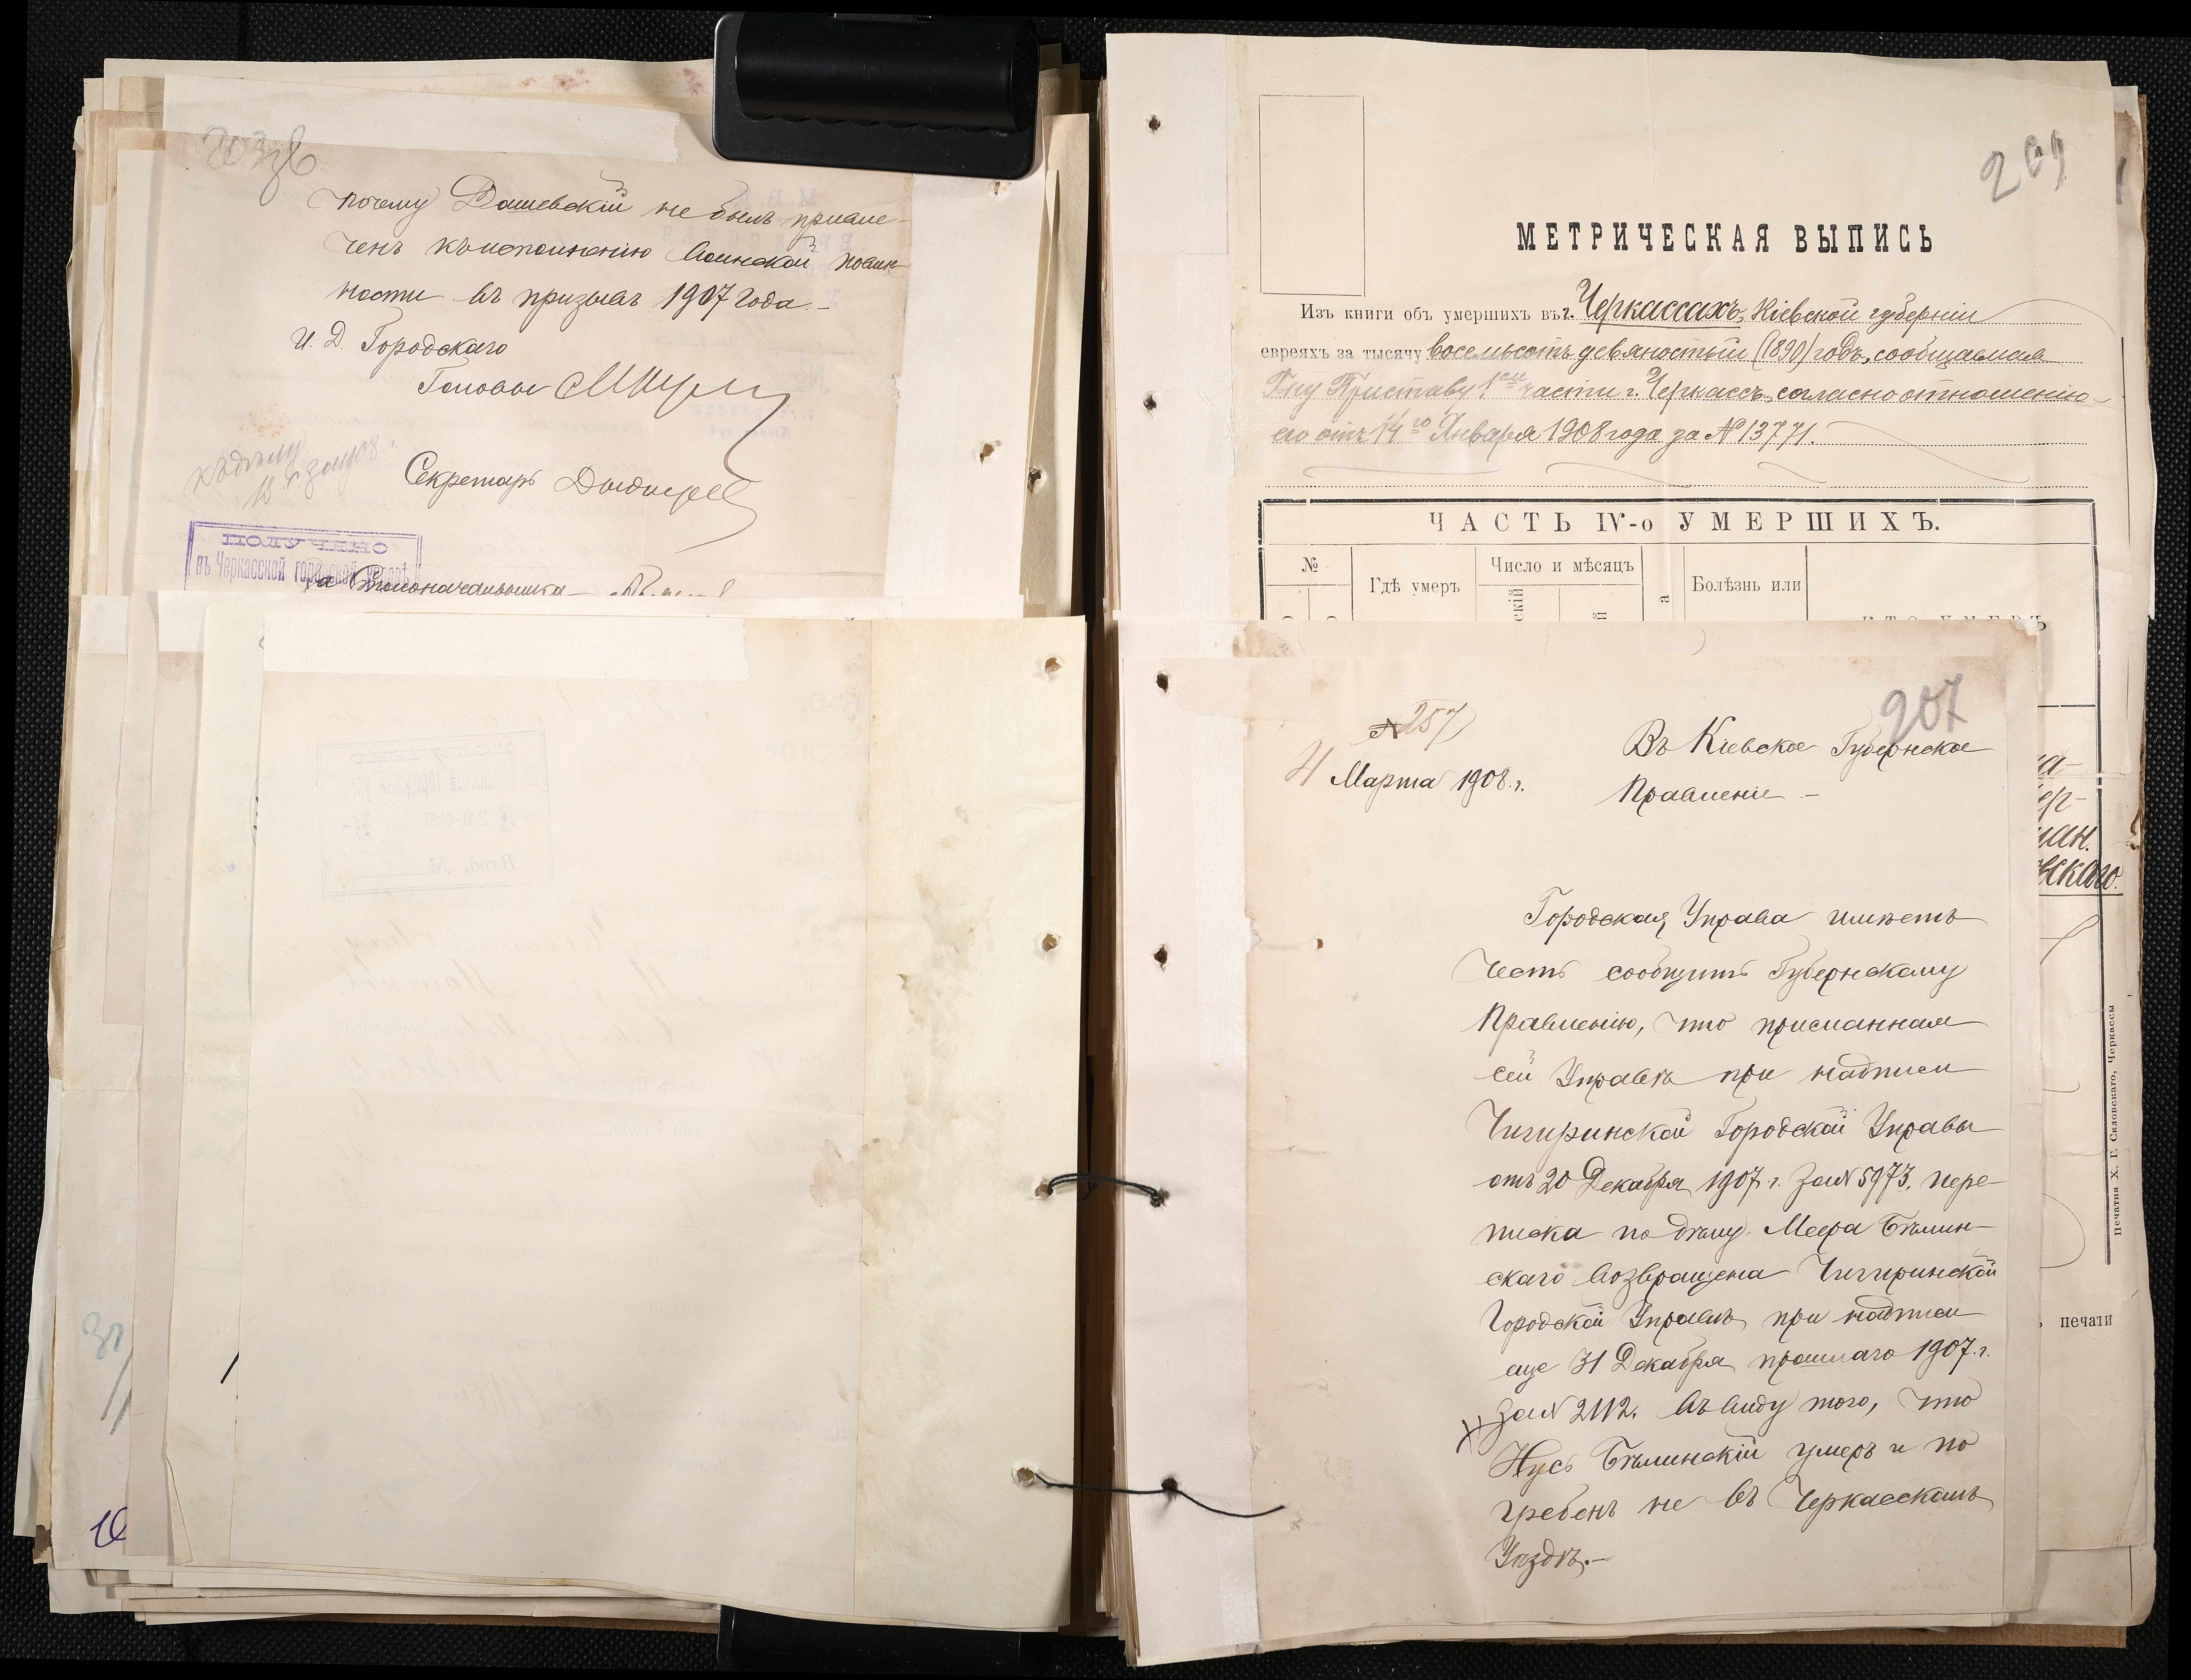 почему Дашевскій не былъ привле-
ченъ къ исполненію воинской повин-
ности въ призывъ 1907 года.-
И. Д. Городского
Головы
Секретарь
ПОЛУЧЕНО
въ Черкасской городской управѣ
за Столоначальника
209
МЕТРИЧЕСКАЯ ВЫПИСЬ
Изъ книги объ умершихъ въ г. Черкассахъ, Кіевской губерніи
евреяхъ за тысячу восемьсотъ девяностый (1890) годъ, сообщаемая
Г-ну Приставу 1ой части г. Черкассъ, согласно отношенію
его отъ 14го Января 1908 года за № 13771.
ЧАСТЬ IV-о УМЕРШИХЪ.
№
Гдѣ умеръ
Число и мѣсяцъ
Болѣзнь или
КТО УМЕРЪ
207
№ 257
4 Марта 1908 г.
Въ Кіевское Губернское
Правленіе -
Городская Управа имѣетъ
честь сообщить Губернскому
Правленію, что присланная
сей Управѣ при надписи
Чигиринской Городской Управы
отъ 20 Декабря 1907 г. за № 5973, пере-
писка по дѣлу Меера Бѣлин-
скаго возвращена Чигиринской
Городской Управѣ при надписи
еще 31 Декабря прошлаго 1907 г.
за № 2112. въ виду того, что
Нусь Бѣлинскій умеръ и по
гребенъ не въ Черкасскомъ
Уѣздѣ.-
Печатня Х. Г. Скловскаго, Черкассы
печати